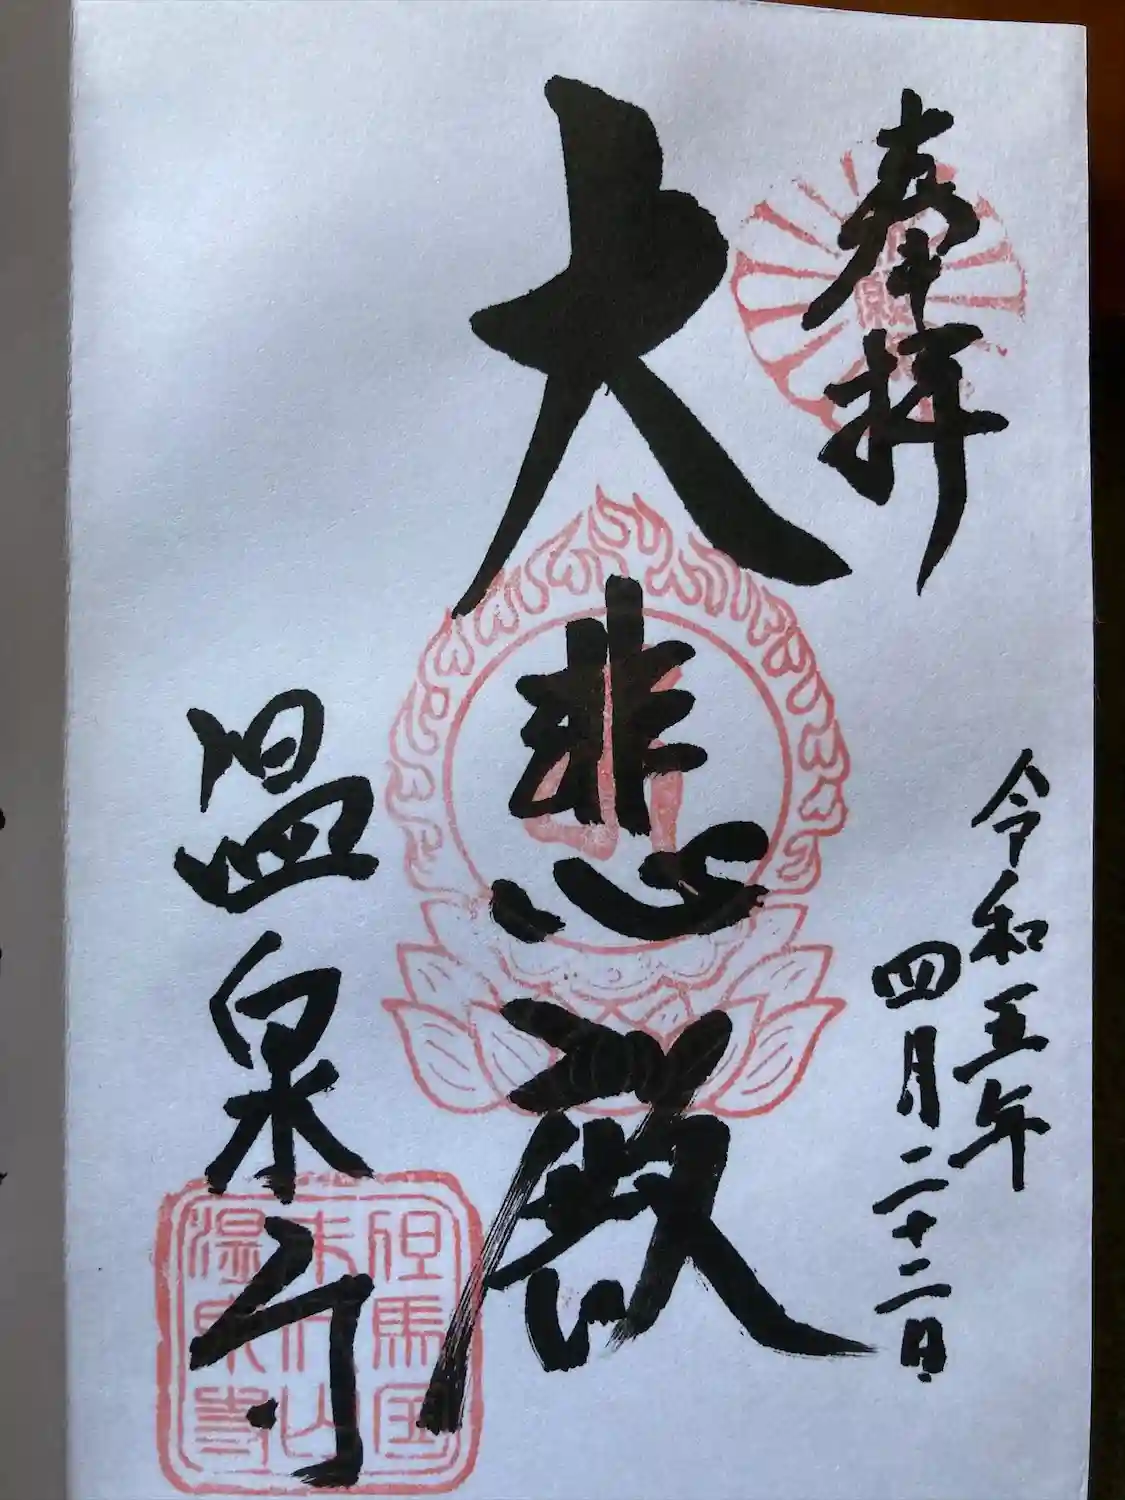 奉拝
令和五年
四月二十二日
大悲殿
温泉寺
但馬国
末代山
温泉寺